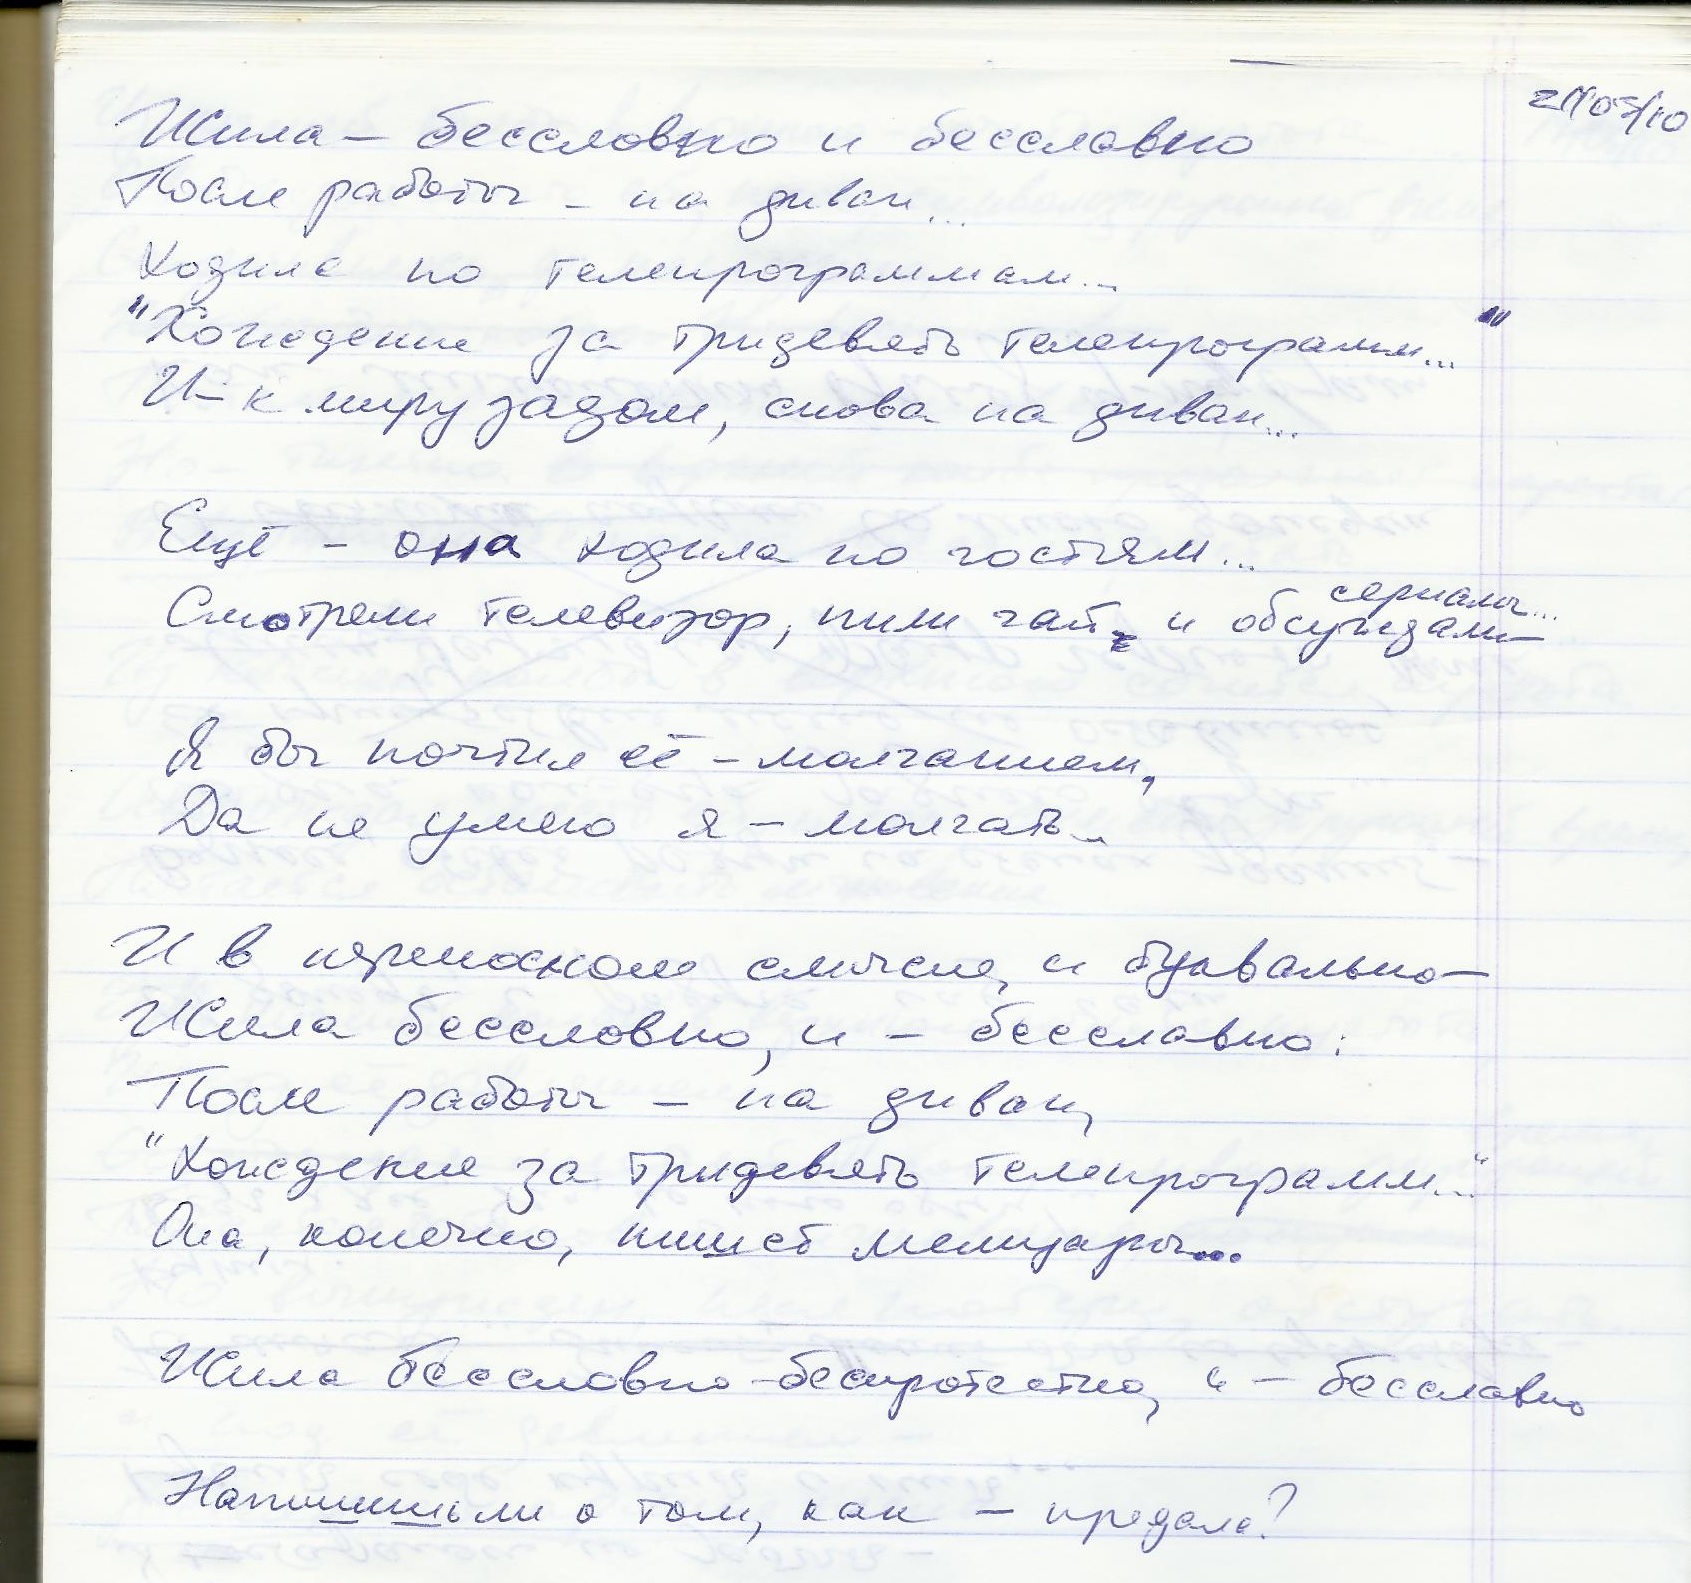 21/05/10
Жила – бессловно и бесславно
После работы – на диван...
Ходила по телепрограммам...
"Хождение за тридевять телепрограмм..."
И – к миру задом, снова на диван...
Ещё – она ходила по гостям...
Смотрели телевизор, пили чай, и обсуждали – сериалы...
Я бы почтил её – молчанием,
Да не умею я – молчать...
И в переносном смысле, и буквально –
Жила бессловно, и – бесславно:
После работы – на диван,
"Хождение за тридевять телепрограмм..."
Она, конечно, пишет мемуары...
Жила бессловно-беспротестно, и – бесславно
Напишешь ли о том, как – предала?